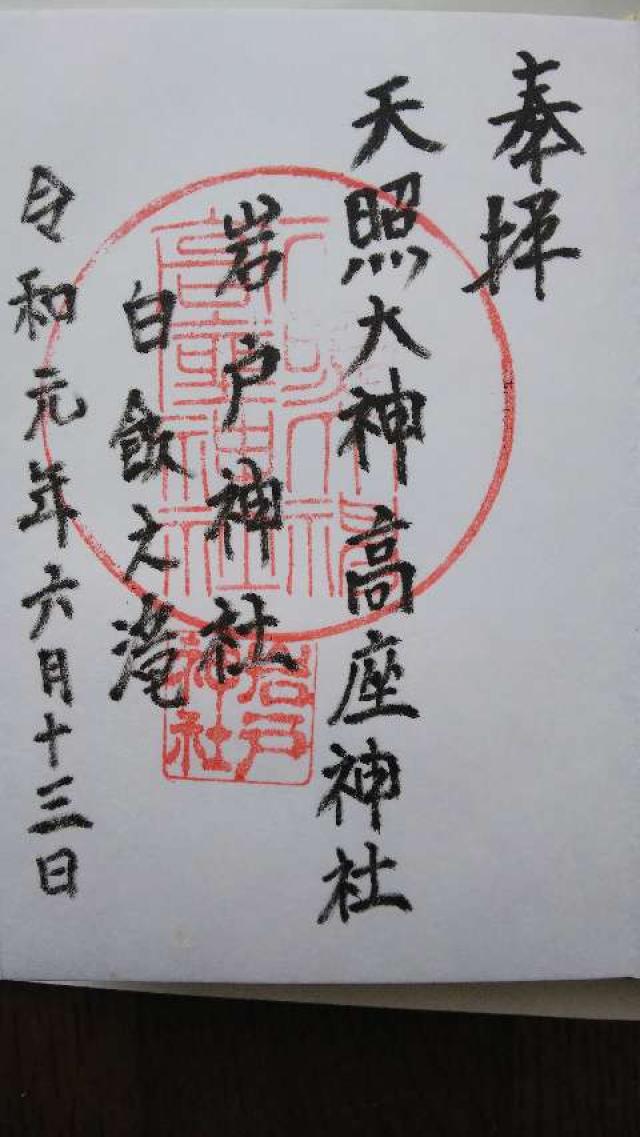 奉拝
天照大神高座神社
岩戸神社
白飯之滝
令和元年六月十三日
岩戸
神社